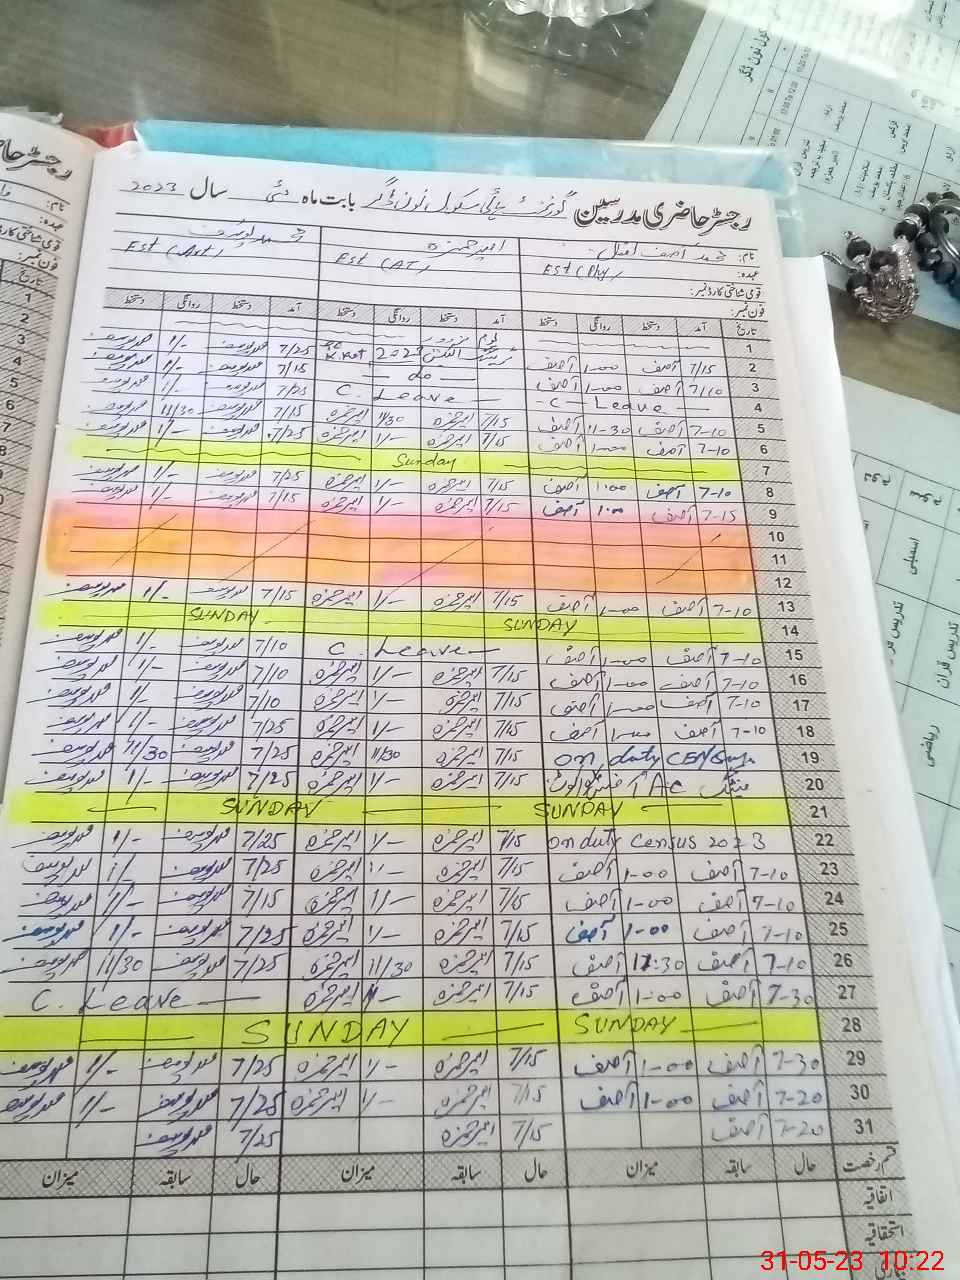 رجسٹر حاضری مدرسین گورنمنٹ ہائی سکول نون ڈگر بابت ماہ مئی سال 2023
نام: محمد آصف اقبال امیر حمزہ محمد یوسف
عہدہ: Est (Phy) Est (AT) Est (AT)
قومی شناختی کارڈ نمبر:
فون نمبر:
تاریخ آمد دستخط روانگی دستخط آمد دستخط روانگی دستخط آمد دستخط روانگی دستخط
1 یوم
2 7/15 آصف 1-00 آصف 2023 7/25 محمد یوسف 1/- محمد یوسف
3 7/10 آصف 1-00 آصف do 7/15 محمد یوسف 1/- محمد یوسف
4 C - Leave C. Leave 7/25 محمد یوسف 1/- محمد یوسف
5 7-10 آصف 11-30 آصف 7/15 امیر حمزہ 11/30 امیر حمزہ 7/15 محمد یوسف 11/30 محمد یوسف
6 7-10 آصف 1-00 آصف 7/15 امیر حمزہ 1/- امیر حمزہ 7/25 محمد یوسف 1/- محمد یوسف
7 Sunday
8 7-10 آصف 1:00 آصف 7/15 امیر حمزہ 1/- امیر حمزہ 7/25 محمد یوسف 1/- محمد یوسف
9 7-15 آصف 1:00 آصف 7/15 امیر حمزہ 1/- امیر حمزہ 7/15 محمد یوسف 1/- محمد یوسف
10
11
12
13 7-10 آصف 1-00 آصف 7/15 امیر حمزہ 1/- امیر حمزہ 7/15 محمد یوسف 1/- محمد یوسف
14 SUNDAY SUNDAY
15 7-10 آصف 1-00 آصف C. Leave 7/10 محمد یوسف 1/- محمد یوسف
16 7-10 آصف 1-00 آصف 7/15 امیر حمزہ 1/- امیر حمزہ 7/10 محمد یوسف 1/- محمد یوسف
17 7-10 آصف 1-00 آصف 7/15 امیر حمزہ 1/- امیر حمزہ 7/10 محمد یوسف 1/- محمد یوسف
18 7-10 آصف 1-00 آصف 7/15 امیر حمزہ 1/- امیر حمزہ 7/25 محمد یوسف 1/- محمد یوسف
19 on duty CENSUS 7/15 امیر حمزہ 11/30 امیر حمزہ 7/25 محمد یوسف 11/30 محمد یوسف
20 میٹنگ AC آفس 7/15 امیر حمزہ 1/- امیر حمزہ 7/25 محمد یوسف 1/- محمد یوسف
21 SUNDAY SUNDAY
22 on duty Census 2023 7/15 امیر حمزہ 1/- امیر حمزہ 7/25 محمد یوسف 1/- محمد یوسف
23 7-10 آصف 1-00 آصف 7/15 امیر حمزہ 1/- امیر حمزہ 7/25 محمد یوسف 1/- محمد یوسف
24 7-10 آصف 1-00 آصف 7/15 امیر حمزہ 1/- امیر حمزہ 7/15 محمد یوسف 1/- محمد یوسف
25 7-10 آصف 1-00 آصف 7/15 امیر حمزہ 1/- امیر حمزہ 7/25 محمد یوسف 1/- محمد یوسف
26 7-10 آصف 11:30 آصف 7/15 امیر حمزہ 11/30 امیر حمزہ 7/25 محمد یوسف 11/30 محمد یوسف
27 7-30 آصف 1:00 آصف 7/15 امیر حمزہ 1/- امیر حمزہ C. Leave
28 SUNDAY SUNDAY
29 7-30 آصف 1-00 آصف 7/15 امیر حمزہ 1/- امیر حمزہ 7/25 محمد یوسف 1/- محمد یوسف
30 7-20 آصف 1-00 آصف 7/15 امیر حمزہ 1/- امیر حمزہ 7/25 محمد یوسف 1/- محمد یوسف
31 7-20 آصف 7/15 امیر حمزہ 7/25 محمد یوسف
قسم رخصت حال سابقہ میزان حال سابقہ میزان حال سابقہ میزان
اتفاقیہ
استحقاقیہ
31-05-23 10:22